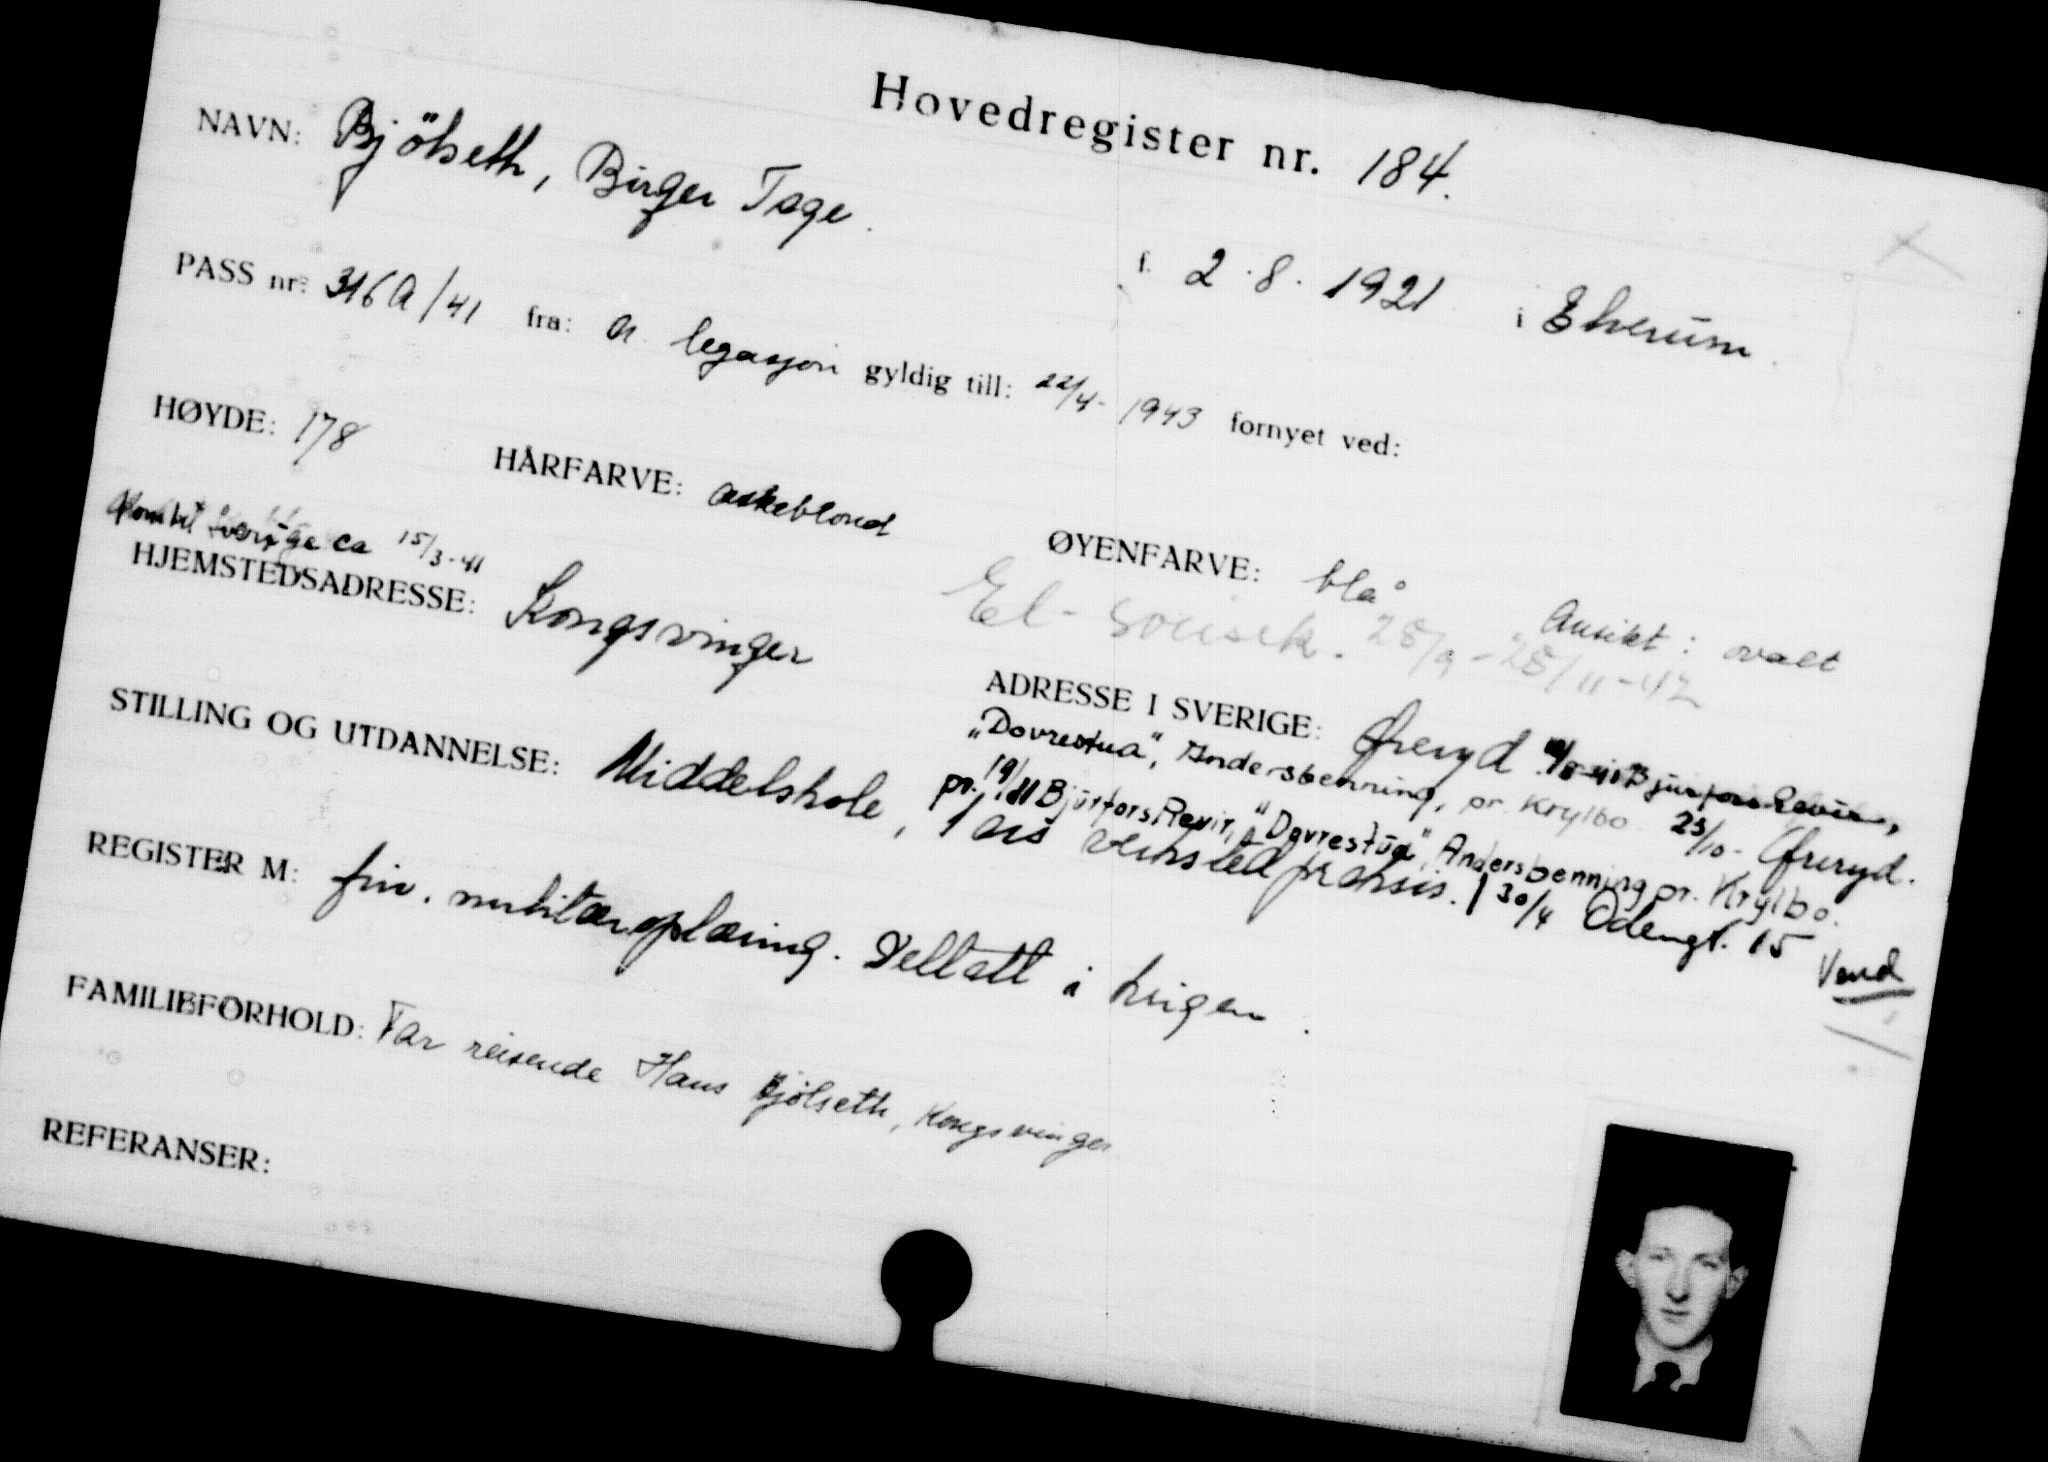 Hovedregister nr. 184.
NAVN: Bjölseth, Birger Tage.
f. 2.8.1921 i Elverum.
PASS nr: 316A/41 fra: n. legasjon gyldig till: 22/4-1943 fornyet ved:
HØYDE: 178 HÅRFARVE: askeblond ØYENFARVE: blå Ansikt: ovalt
Kom til Sverige ca 15/3-41
HJEMSTEDSADRESSE: Kongsvinger
El- 28/9-28/11-42
ADRESSE I SVERIGE: Øreryd Bjurfors Revir,
"Dovrestua", Andersbenning, pr. Krylbo. 23/10- Øreryd.
pr. 19/11 Bjurfors Revir, "Dovrestua", Andersbenning pr. Krylbo.
30/4 Odengt. 15 Vend
STILLING OG UTDANNELSE: Middelskole, 1 års verkstedpraksis.
REGISTER M: militæroplæring. Deltatt i krigen.
FAMILIEFORHOLD: Far reisende Hans Bjölseth, Kongsvinger
REFERANSER: